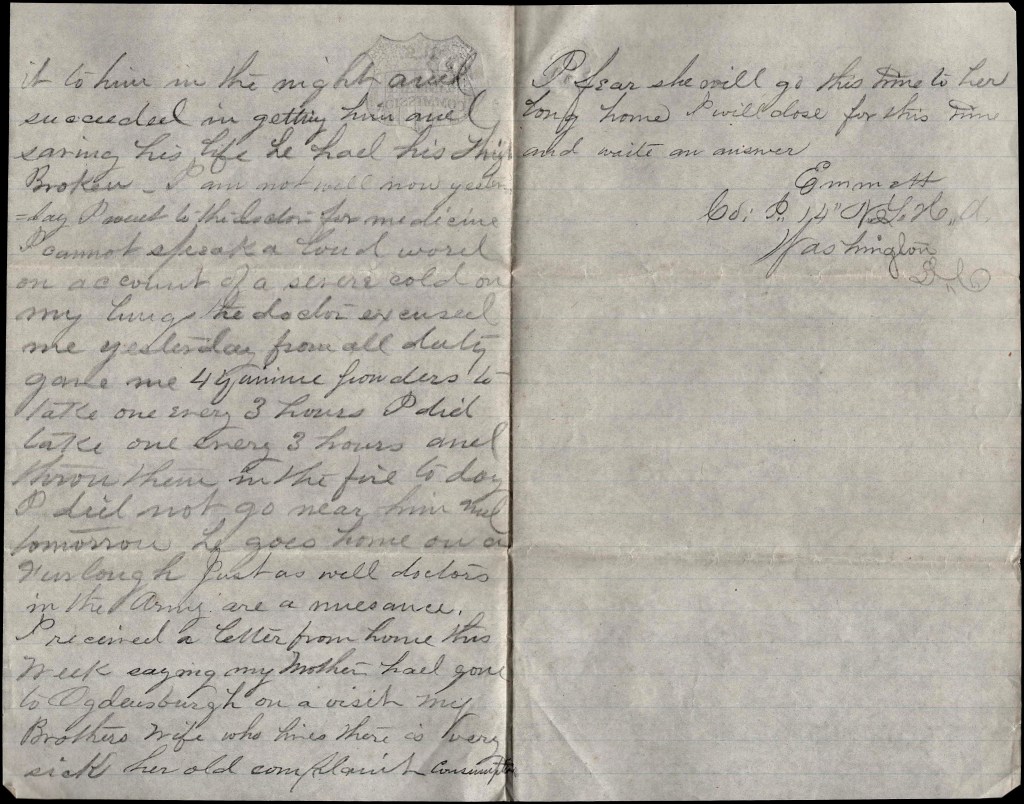 it to him in the night and
succeeded in getting him and
saving his life he had his thigh
Broken - I am not well now yester
=day I went to the doctor for medicine
I cannot speak a loud word
on account of a severe cold on
my lungs the doctor excused
me yesterday from all duty
gave me 4 Quinine powders to
take one every 3 hours I did
take one every 3 hours and
throw them in the fire to day
I did not go near him and
tomorrow he goes home on a
Furlough Just as well doctors
in the Army are a nuesance.
I received a letter from home this
Week saying my Mother had gone
to Ogdensburgh on a visit My
Brothers Wife who lives there is very
sick her old complaint consumption
I fear she will go this time to her
long home I will close for this time
and write an answer
Emmett
Co. 14" N.Y.H.A.
Washington
D.C
U.S.
COMMISSION